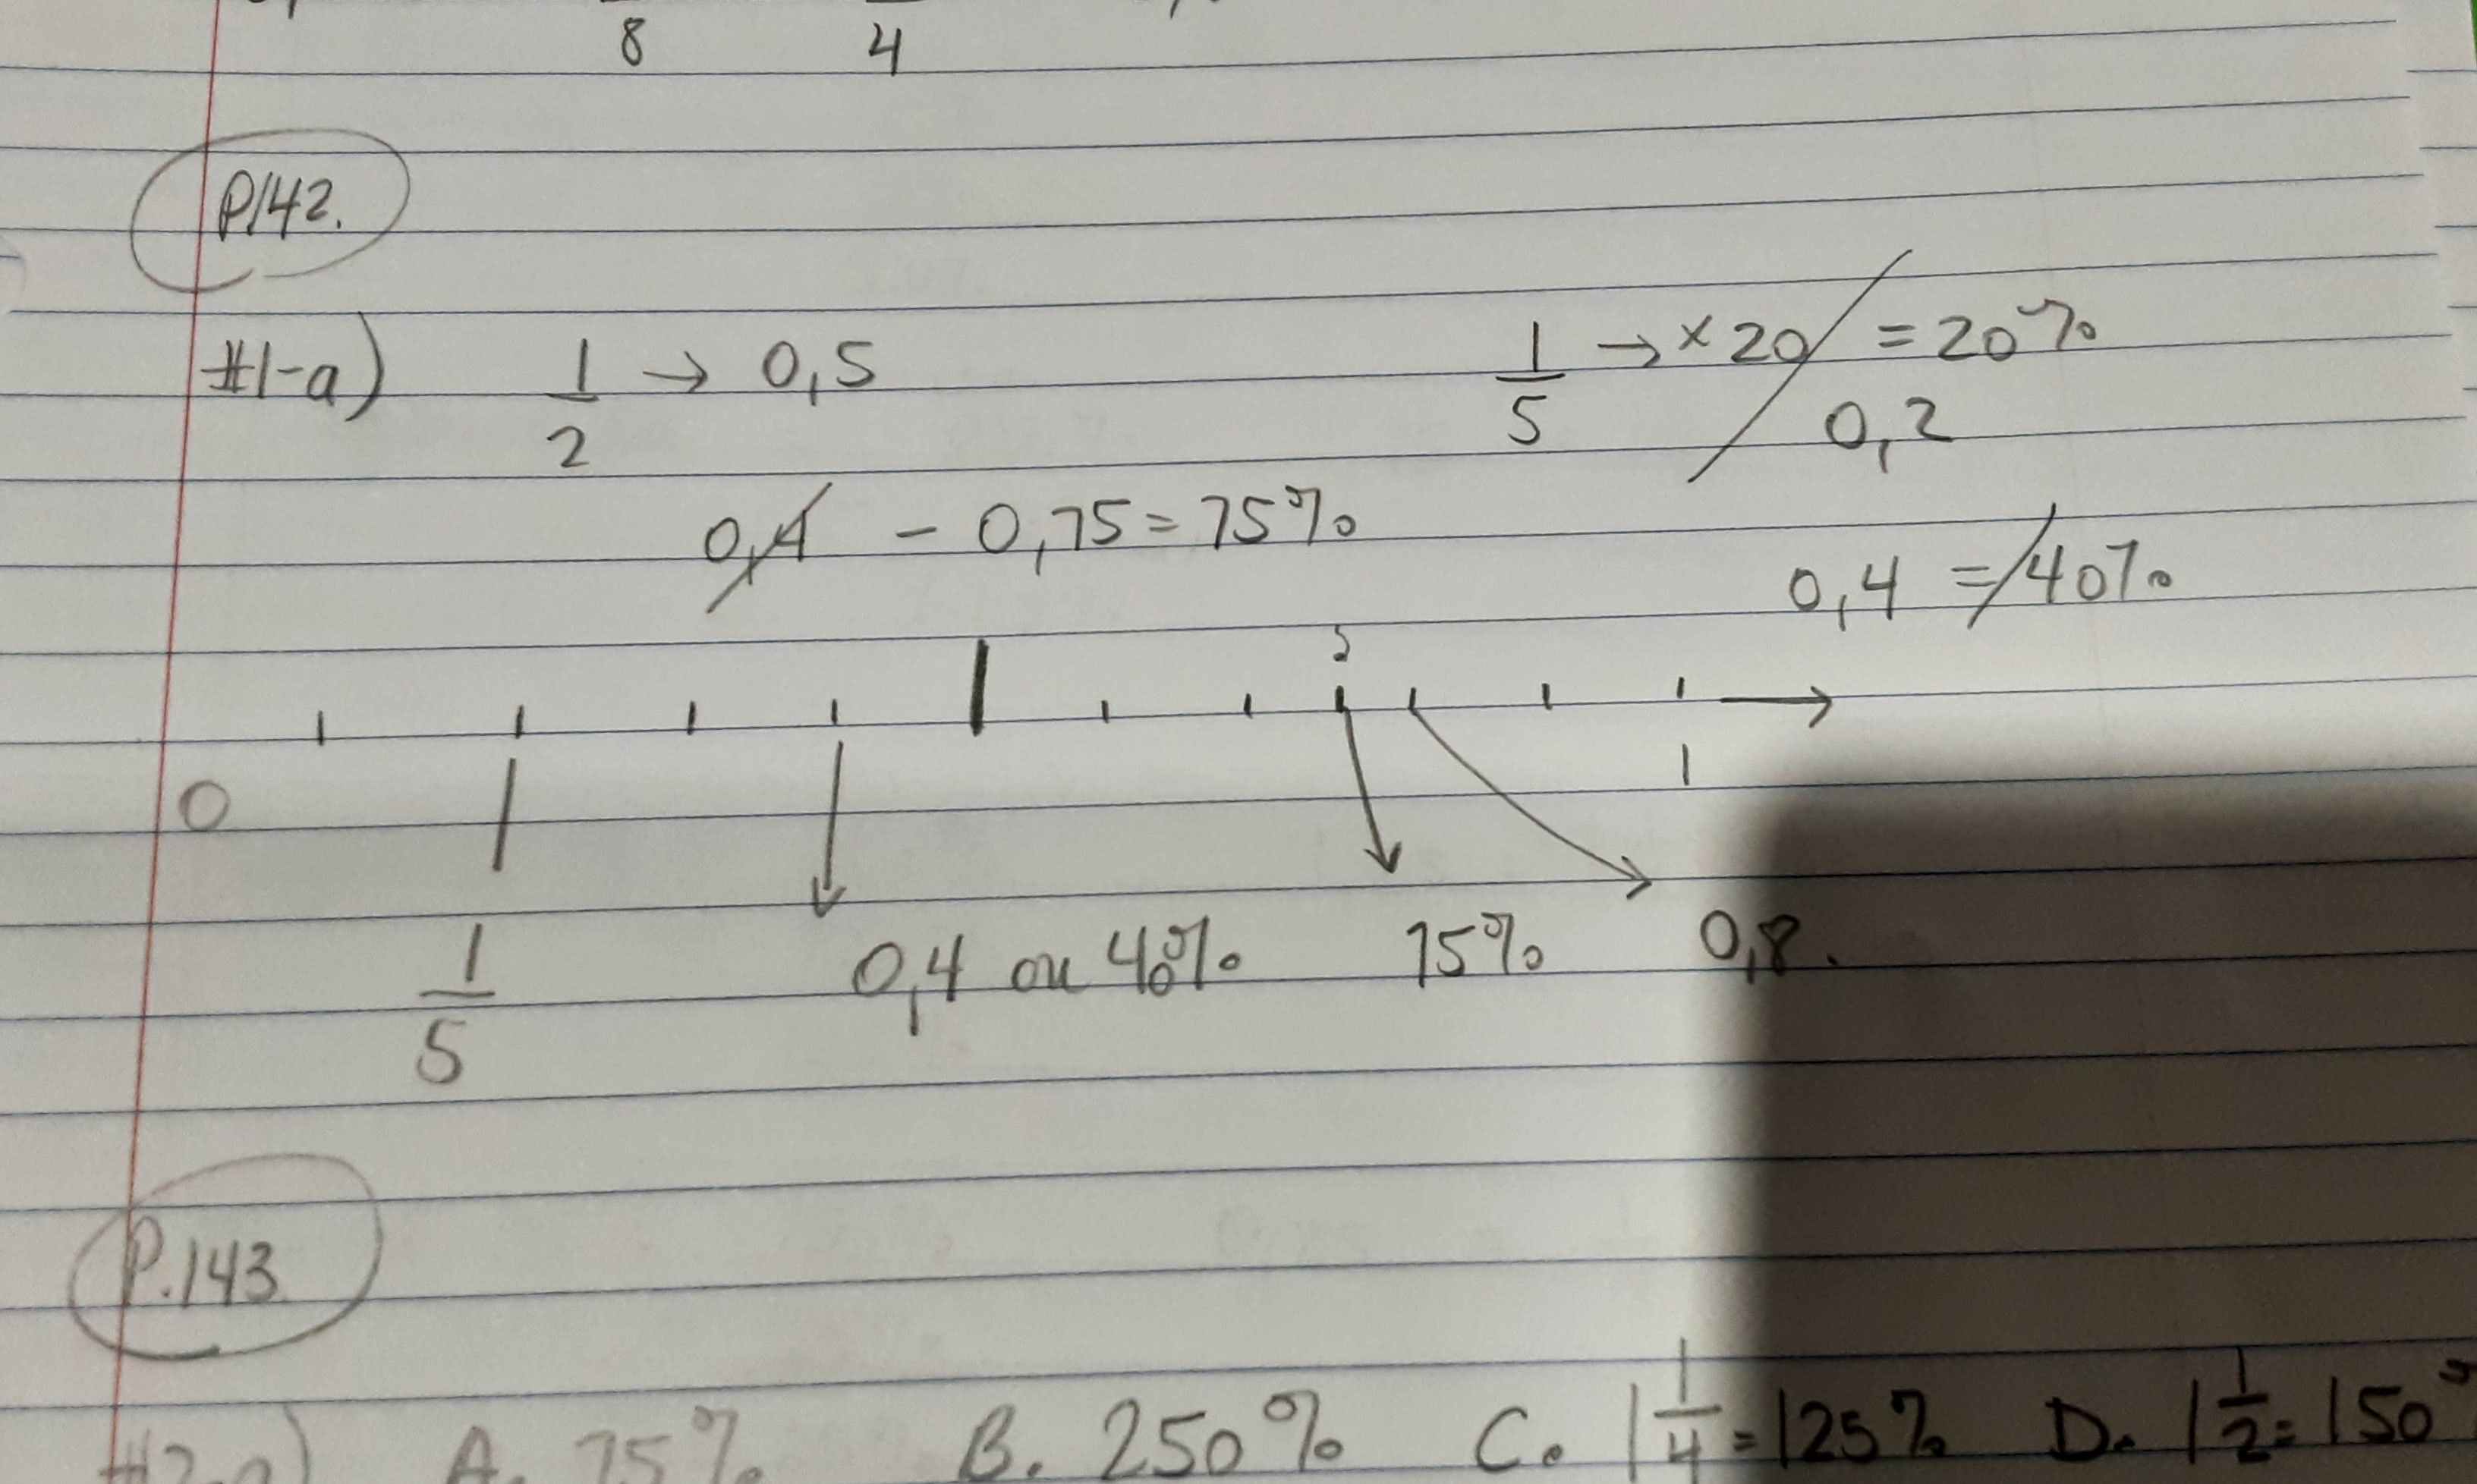 8 4
P142.
#1-a) 1/2 → 0,5 1/5 → ×20 = 20%
0,2
0,4 - 0,75 = 75%
0,4 = 40%
5
0 1
1/5 0,4 ou 40% 75% 0,8.
P.143
#2-a) A. 75% B. 250% C. 1 1/4 = 125% D. 1 1/2 = 150%